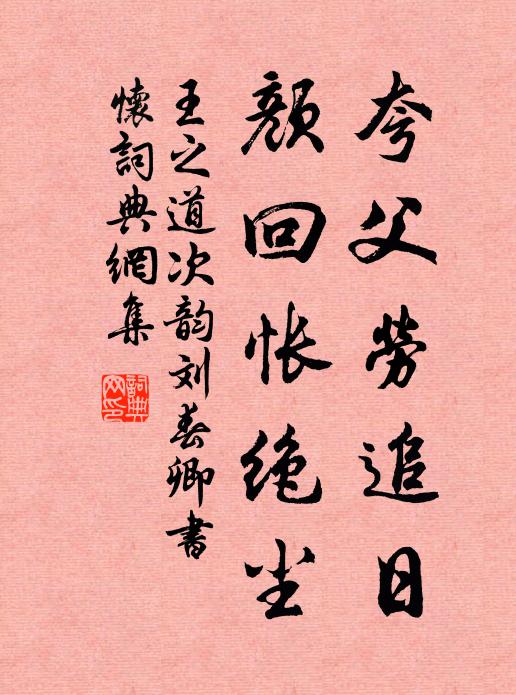 夸父劳追日
颜回怅绝尘
王之道次韵刘春卿书
懷詞典網集
詞典网印